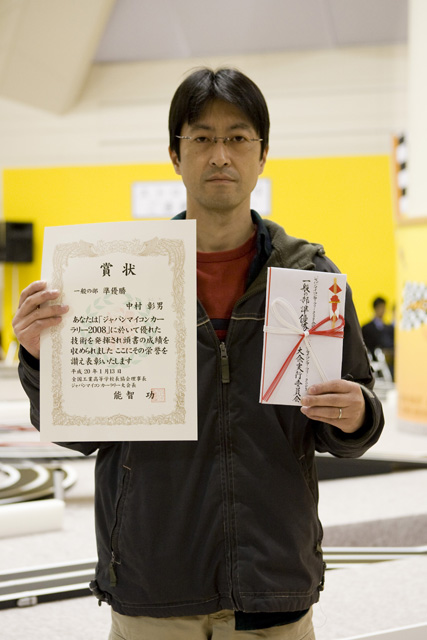 賞状
一般の部 準優勝
中村 彰男
あなたは「ジャパンマイコンカー
ラリー2008」に於いて優れた
技術を発揮され頭書の成績を
収められました ここにその栄誉を
讃え表彰いたします
平成20年1月13日
全国工業高等学校長協会理事長
ジャパンマイコンカーラリー大会長
能智 功
ジャパンマイコンカーラリー2008
一般の部 準優勝
大会実行委員会